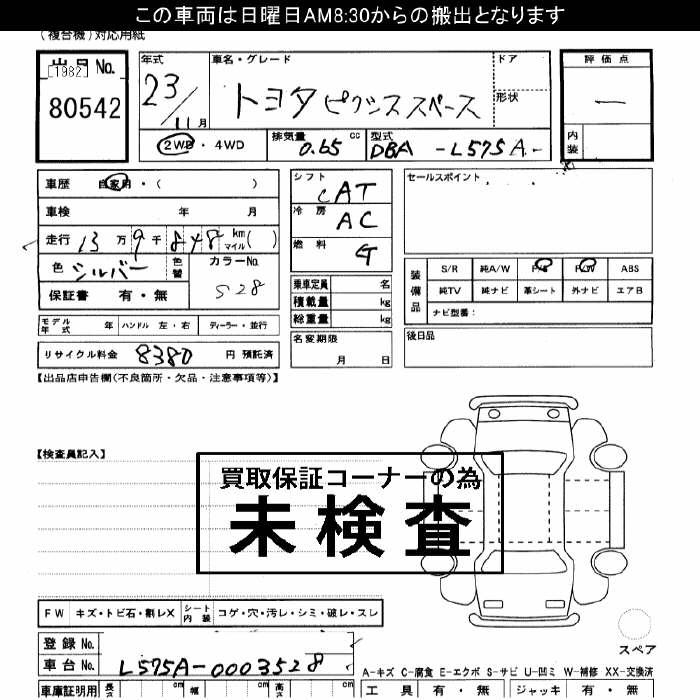 この車両は日曜日AM8:30からの搬出となります
(複合機)対応用紙
出品 No.
[1982]
80542
年式
23/11月
車名・グレード
トヨタ ピクシススペース
ドア
形状
評価点
一
内装
2WD・4WD
排気量 0.65 cc
型式 DBA -L575A-
車歴 自家用・( )
車検 年 月
走行 13万9千848 km マイル ( )
色 シルバー 色替
カラーNo. S28
保証書 有・無
シフト CAT
冷房 AC
燃料 G
乗車定員 名
積載量 kg
総重量 kg
セールスポイント
装備品
S/R 純A/W P/S P/W ABS
純TV 純ナビ 革シート 外ナビ エアB
ナビ型番:
モデル年式 年 ハンドル 左・右 ディーラー・並行
名変期限 月 日
後日品
リサイクル料金 8380 円 預託済
【出品店申告欄(不良箇所・欠品・注意事項等)】
【検査員記入】
買取保証コーナーの為
未検査
FW キズ・トビ石・割レX シート内装 コゲ・穴・汚レ・シミ・破レ・スレ
スペア
登録 No.
車台 No. L575A-0003528
A-キズ C-腐食 E-エクボ S-サビ U-凹ミ W-補修 XX-交換済
車庫証明用 長さ cm 幅 cm 高さ cm
工具 有・無 ジャッキ 有・無